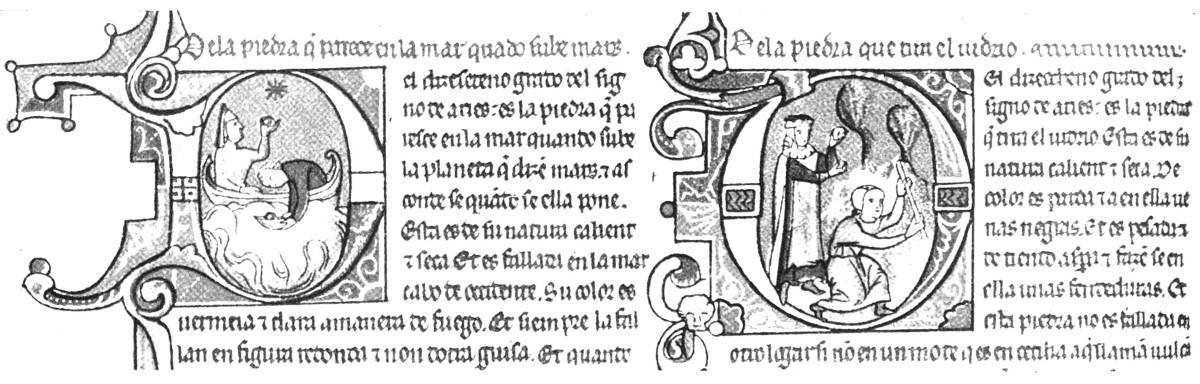 De la piedra q̃ parece en la mar quãdo sube mars.
el dizeseteno grado del sig
no de aries: es la piedra q̃ pa
resce en la mar quando sube
la planeta q̃ dizẽ mars. ⁊ as
conde se quãdo se ella pone.
Esta es de su natura calient
⁊ seca. Et es fallada en la mar
cabo de occidente. Su color es
uermeia ⁊ clara a manera de fuego. Et siempre la fal
lan en figura redonda ⁊ non dotra guisa. Et quando
De la piedra que tira el uidrio.
El dizeocheno grado del
signo de aries: es la piedra
q̃ tira el uidrio. Esta es de su
natura calient ⁊ seca. De
color es parda ⁊ a en ella ue
nas negras. Et es pesada ⁊
de tiento aspra ⁊ fazẽ se en
ella unas fendeduras. Et
esta piedra no es fallada en
otro logar si nõ en un mõte q̃ es en cecilia a q̃ llamã uulcã